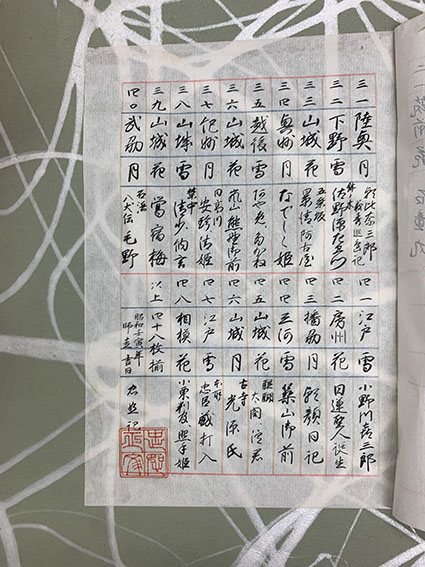 三一 陸奥 月
三二 下野 雪 佐野源左衛門
三三 山城 花 五条坂 景清 阿古屋
三四 奥州 月 姫
三五 越後 雪
三六 山城 花 嵐山 熊野御前
三七 紀州 月 日高川 安珍清姫
三八 山城 雪 禁中 清少納言
三九 山城 花 鶯宿梅
四〇 武州 月 石浜 八犬伝 毛野
四一 江戸 雪 小野川喜三郎
四二 房州 花 日蓮聖人誕生
四三 播州 月 朝顔日記
四四 三河 雪 築山御前
四五 山城 花 醍醐 太閤 淀君
四六 山城 月 古寺 光源氏
四七 江戸 雪 本所 忠臣蔵打入
四八 相模 花 小栗判官 照手姫
以上 四十八枚揃
昭和壬寅年
師走吉日
記